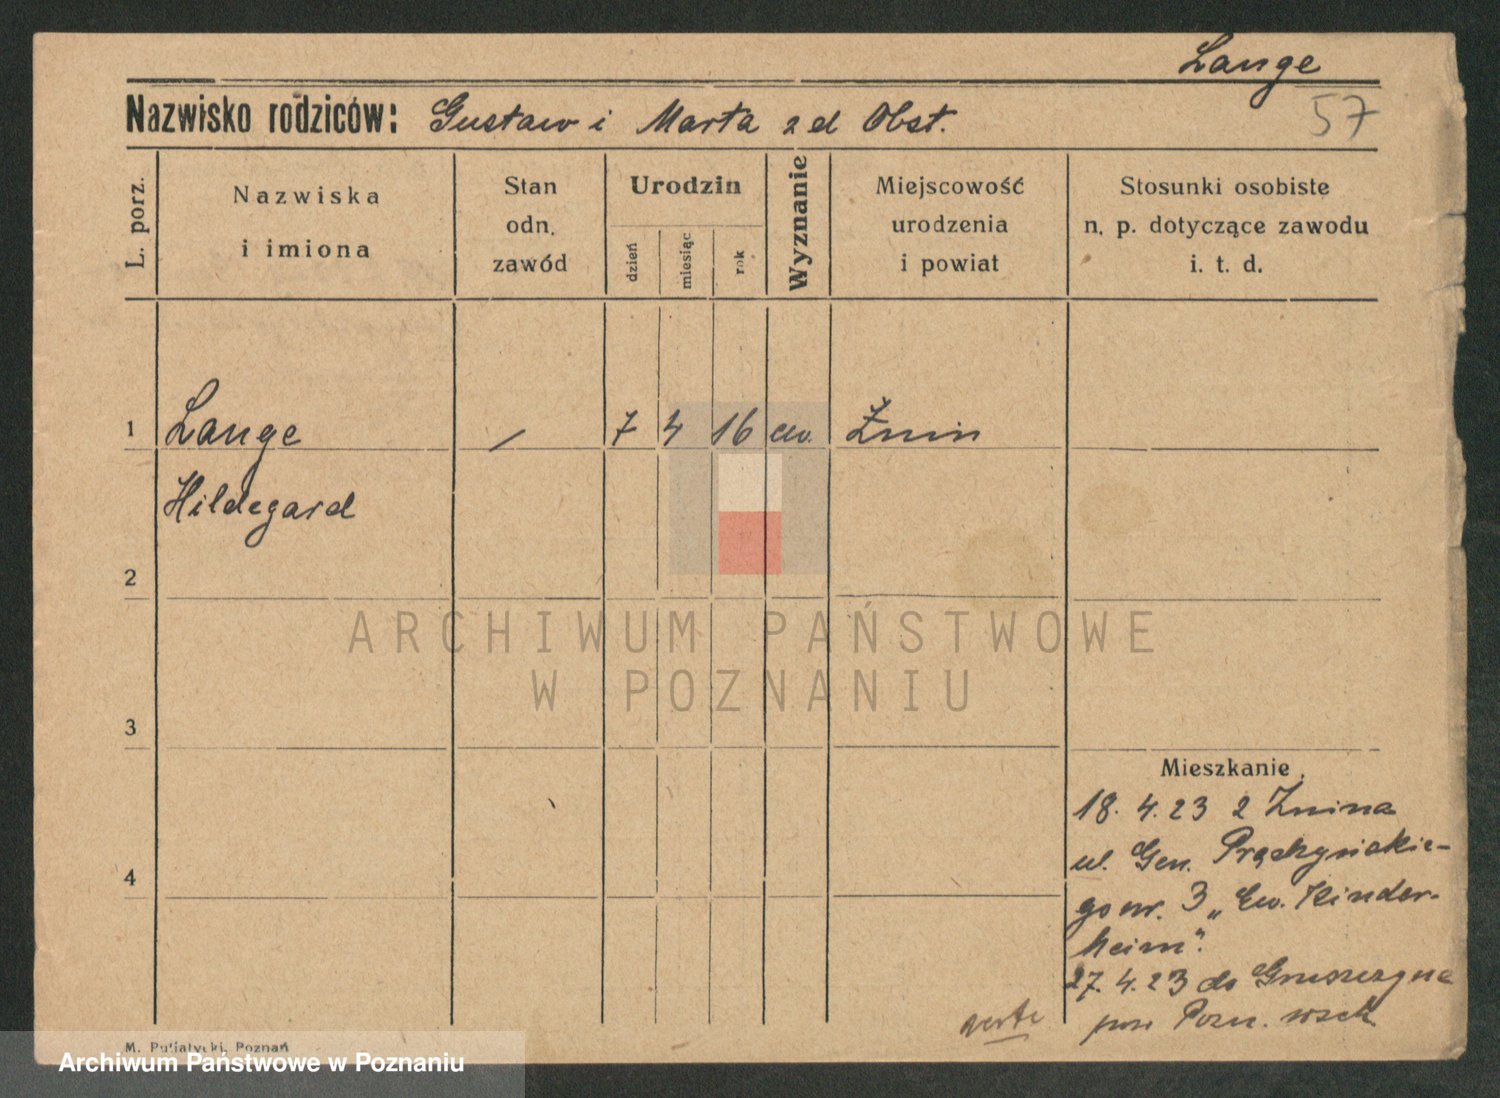 Lange
57
Nazwisko rodziców: Gustaw i Marta z d Obst.
L. porz.
Nazwiska
i imiona
Stan
odn.
zawód
Urodzin
dzień
miesiąc
rok
Wyznanie
Miejscowość
urodzenia
i powiat
Stosunki osobiste
n. p. dotyczące zawodu
i. t. d.
1 Lange — 7 4 16 ew. Żnin
Hildegard
2
ARCHIWUM PAŃSTWOWE
W POZNANIU
3
Mieszkanie
18. 4. 23 z Żnina
ul. Gen. Prądzyńskie-
4
go nr. 3 „Ew. Kinder-
heim".
27. 4. 23 do Gruszczyna
pow Pozn. wsch
verte
M. Putiatycki, Poznań
Archiwum Państwowe w Poznaniu